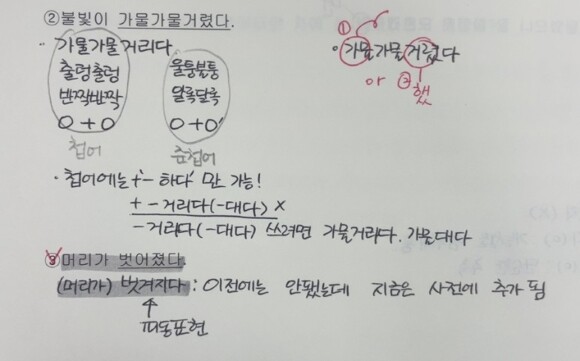 ②불빛이 가물가물거렸다.
· 가물가물거리다.
출렁출렁
반짝반짝
O + O
첩어
울퉁불퉁
얼룩덜룩
O + O'
준첩어
①
· 가물가물거렸다
or ②했
· 첩어에는 +'- 하다' 만 가능!
+ - 거리다(-대다) ×
- 거리다(-대다) 쓰려면 가물거리다. 가물대다
③머리가 벗어졌다.
(머리가) 벗겨지다 : 이전에는 안됐는데 지금은 사전에 추가 됨
↑
피동표현